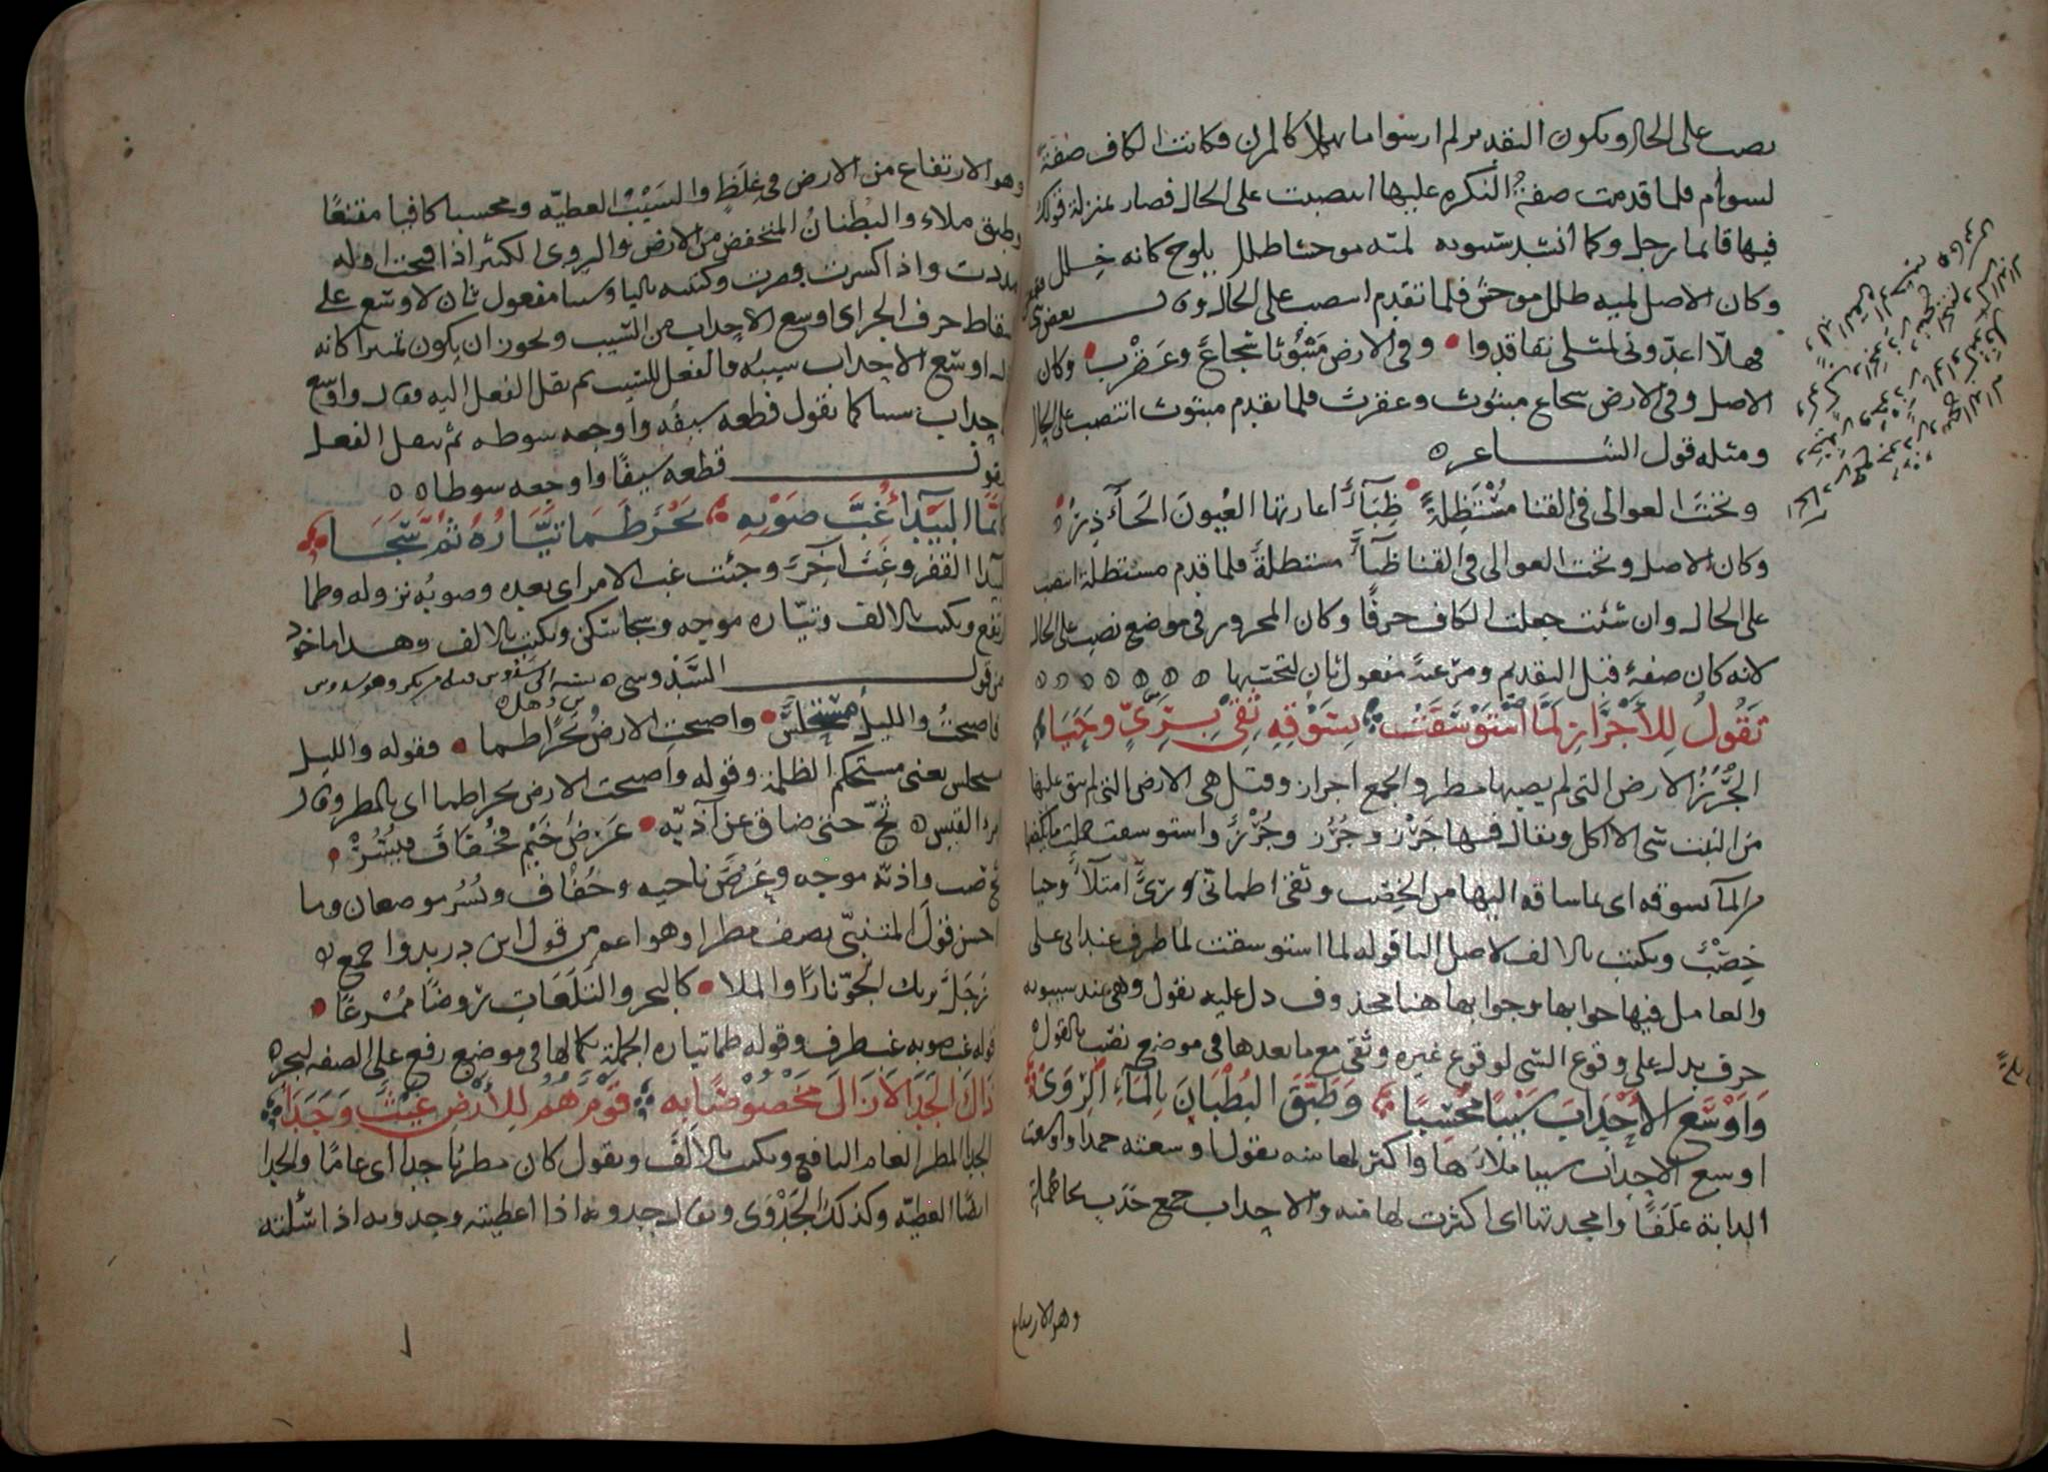 نصب على الحال ويكون التقدير لم ار سواما بهلا كالمزن فكانت الكاف صفة
لسوام فلما قدمت صفة النكره عليها انتصبت على الحال فصار بمنزلة قولك
فيها قائما رجل وكما أنشد سيبويه لمية موحشا طلل يلوح كانه خِلل
وكان الاصل لمية طلل موحش فلما تقدم انتصب على الحال وقال بعض
فهلّا اعدّوني لمثلي تفاقدوا وفي الارض مَبْثُوثا شجاعً وعَقرب وكان
الاصل وفي الارض شجاع مبثوث وعقرب فلما تقدم مبثوث انتصب على الحال
ومثله قول الشاعر
وتحتَ العوالي في القنا مُسْتَظِلةً ظِبَآءٌ اعارتها العُيونَ الجَآذِرُ
وكان الاصل وتحت العوالي في القنا ظبآءٌ مستظلةٌ فلما قدم مستظلة انتصب
على الحال وان شئت جعلت الكاف حرفًا وكان المجرور في موضع نصب على الحال
لانه كان صفة قبل التقديم ومن عندَ مفعول ثان لتحتبها
تَقُولُ لِلأَجْرَازِ لَمَّا اسْتَوْسَقَتْ بِسَوْقِهِ ثِقِي بِرِيٍّ وَحَيَا
الجُرُزُ الارض التي لم يصبها مطر والجمع اجراز وقيل هي الارض التي لم يبق عليها
من النبت شي الا اكل ويقال فيها جَرْز وجُرُز وجُرْز واستوسقت حملت ما يكفيها
من المآ بسوقه اي بما ساقه اليها من الخِصب وثقي اطمانّي وريّ امتلآءٌ وحيا
خِصْبٌ ويكتب بالالف لاصل اليا قوله لما استوسقت لما ظرف عند ابي على
والعامل فيها جوابها وجوابها هنا محذوف دل عليه يقول وهي عند سيبويه
حرف يدل على وقوع الشي لوقوع غيره وثقي مع ما بعدها في موضع نصب بالقول
وَاَوْسَعَ الأَحْدَابَ سَيْبًا مُحْسِبًا وَطَبَّقَ البُطْنَانَ بِالمَآءِ الرِّوَى
اوسع الاحداب سيبا ملاءَها واكثر لها منه يقول اوسعته حمدا واوسعت
الدابة علفًا وامجدتها اي اكثرت لها منه والاحداب جمع حَدَب بحا مهملة
وهو الارتفاع
وهو الارتفاع من الارض في غِلَظٍ والسَيْبُ العطيّه ومحسبا كافيا مقنعًا
وطبق ملاء والبُطنانُ المنخفض من الارض والروى الكثير اذا فتحت اوله
مددت واذا كسرت قصرت وكتبته باليا وسيبا مفعول ثان لاوسع على
اسقاط حرف الجر اي اوسع الاحداب من السيب ويجوز ان يكون تمييزا كانه
قال اوسع الاحداب سيبُه فالفعل للسيب ثم نقل الفعل اليه فقال واوسع
الاحداب سيبا كما تقول قطعه سيفُه واوجعه سوطه ثم تنقل الفعل
فتقول قطعه سيفًا واوجعه سوطا
كأنَّما البَيْدَآءُ غِبَّ صَوْبِهِ بَحْرٌ طَمَا تَيَّارُهُ ثُمَّ سَجَا
البيدآ القفر وغِبّ آخِر وجئت غب الامر اي بعده وصوبُه نزوله وطما
ارتفع ويكتب بالالف وتيّاره موجه وسجا سكن ويكتب بالالف وهذا ماخوذ
من قول السَّدوسي
فاصبحتُ والليل مستحلسٌ واصبحت الارض بَحْرًا طما فقوله والليل
مستحلس يعني مستحكم الظلمة وقوله واصبحت الارض بحرا طما اي بالمطر وقال
امرؤ القيس ثجّ حتى ضاق عن آذيّه عَرْضُ خَيْم فخُفَافٍ فيُسُرْ
ثج صبّ واذيّه موجه وعَرْضُ ناحيه وخُفاف ويُسُر موضعان وما
احسن قول المتنبّي يصف مطرا وهو اعم من قول ابن دريد واجمع
زَجَلٌ يريك الجوّ نارًا والملا كالبحر والتَلَعَاتِ رَوضًا مُمْرِعًا
قوله غب صوبه غب ظرف وقوله طما تياره الجملة بكمالها في موضع رفع على الصفه لبحر
ذَاكَ الجَدَا لَازَالَ مَخْصُوْصًا بِهِ قَوْمٌ هُمُ لِلأَرْضِ غَيْثٌ وَجَدَا
الجدا المطر العام النافع ويكتب بالالف ويقول كان مطرُنا جدا اي عامًا والجدا
ايضًا العطيّه وكذلك الجَدْوَى ويقال جدوته اذا اعطيته وجدوته اذا سألته